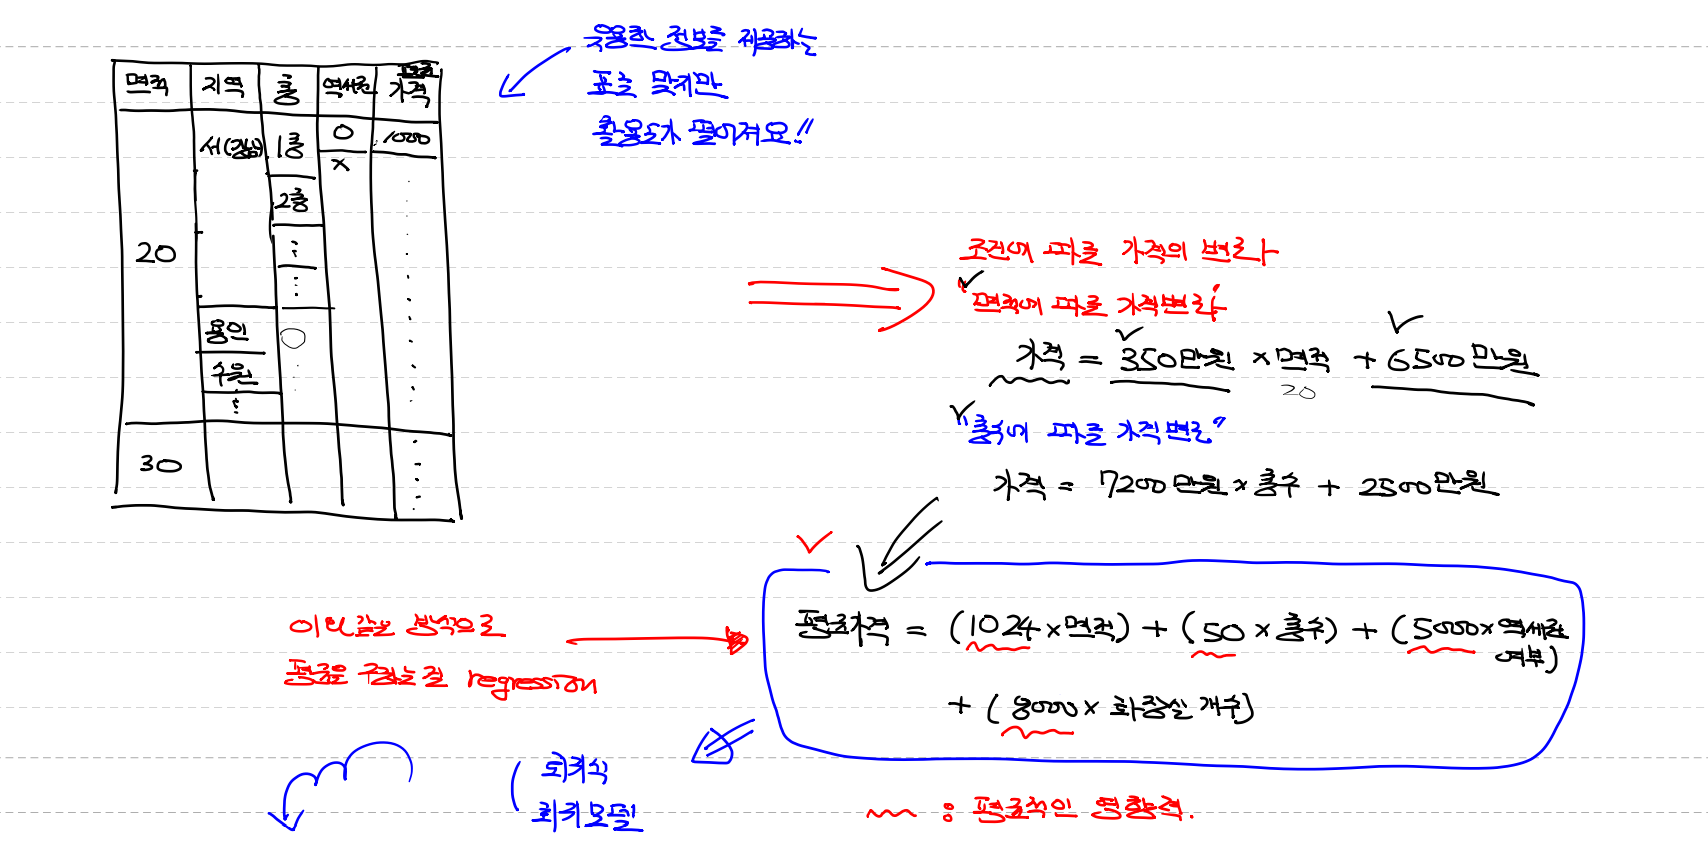 유용한 정보를 제공하는
표는 맞지만
활용도가 떨어져요!!
면적 지역 층 역세권 평균 가격
20 서(강남) 1층 O 1000
x
2층
용인
수원
30
조건에 따른 가격의 변화
"면적에 따른 가격변화"
가격 = 350만원 × 면적 + 6500만원
20
"층수에 따른 가격변화"
가격 = 7200만원 × 층수 + 2500만원
평균가격 = (1024 × 면적) + (50 × 층수) + (5000 × 역세권
여부)
+ (8000 × 화장실 개수)
이와 같은 방식으로
평균을 구하는걸 regression
회귀식
회귀모델
~~ : 평균적인 영향력.